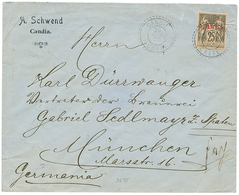 A. Schwend
Candia.
25
Herrn
Karl Dürrwanger
Vertreter der Brauerei
Gabriel Sedlmayr z. Spaten
München
Marsstr. 16.
Germania